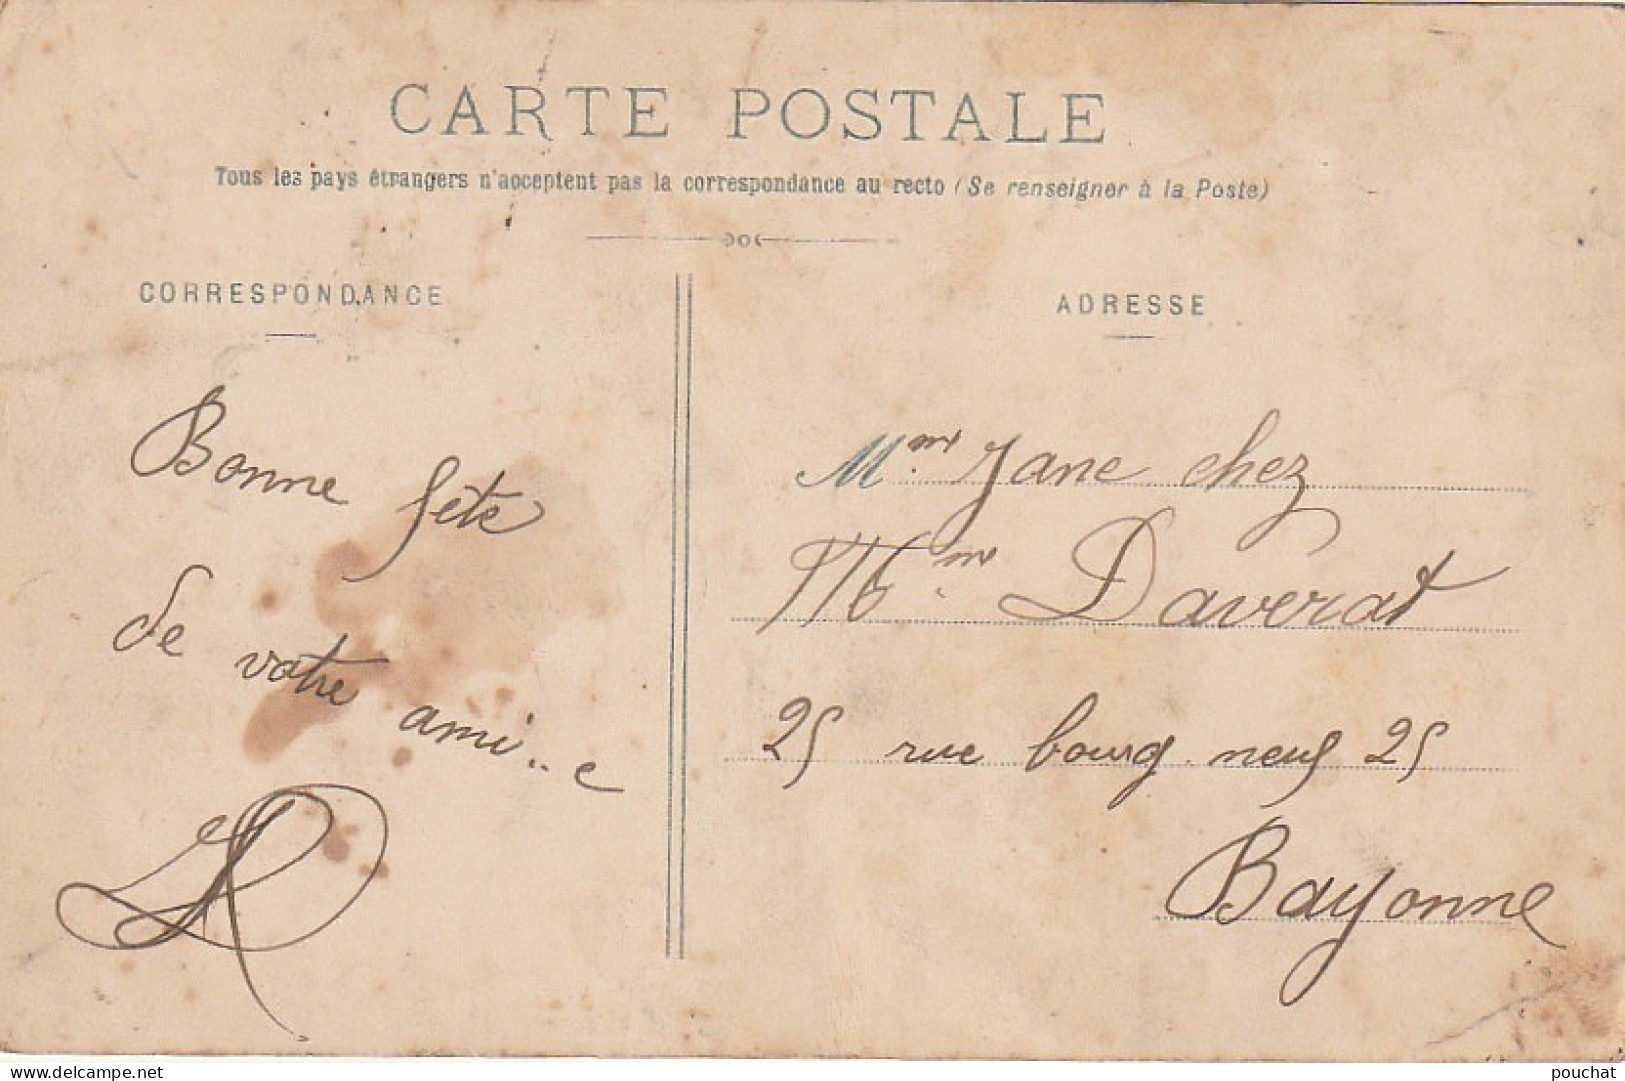 CARTE POSTALE
Tous les pays étrangers n'acceptent pas la correspondance au recto (Se renseigner à la Poste)
CORRESPONDANCE
Bonne fête
de votre ami..e
ADRESSE
Mme Jane chez
Mme Daverat
25 rue bourg neuf 25
Bayonne
delcampe.net
pouchat